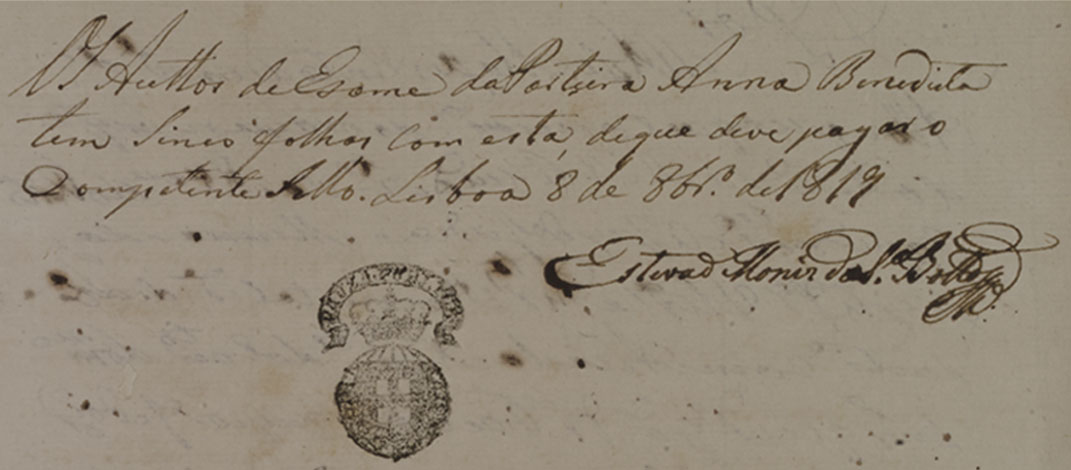 Os Auttos de Esame da Parteira Anna Benedicta
tem Sinco folhas com esta, de que deve pagar o
Competente Sello. Lisboa 8 de 8br.º de 1819
Estevaõ Moniz da S.ª Botto